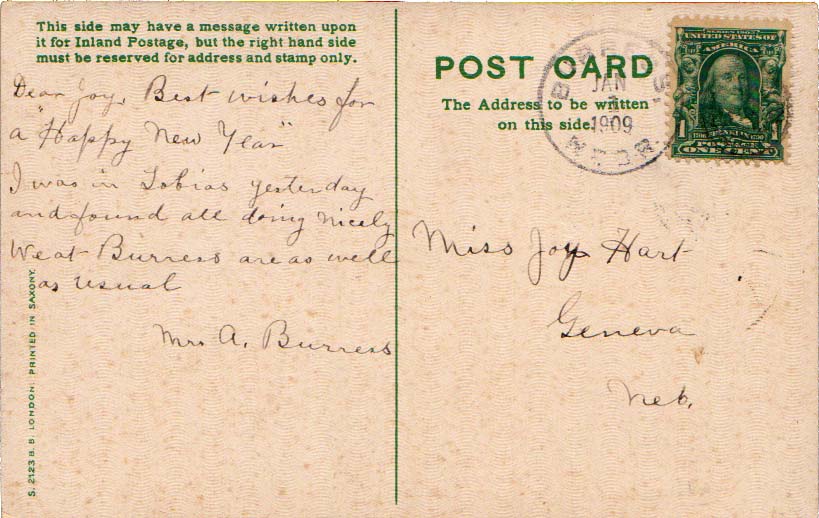 This side may have a message written upon
it for Inland Postage, but the right hand side
must be reserved for address and stamp only.
Dear Joy, Best wishes for
a "Happy New Year"
I was in Tobias yesterday
and found all doing nicely
We at Burress are as well
as usual
Mrs A. Burress
S. 2123 B. B. LONDON. PRINTED IN SAXONY.
POST CARD
The Address to be written
on this side.
JAN
1909
SERIES 1902
UNITED STATES OF
AMERICA
FRANKLIN
1 POSTAGE 1
ONE CENT
Miss Joy Hart
Geneva
Neb.